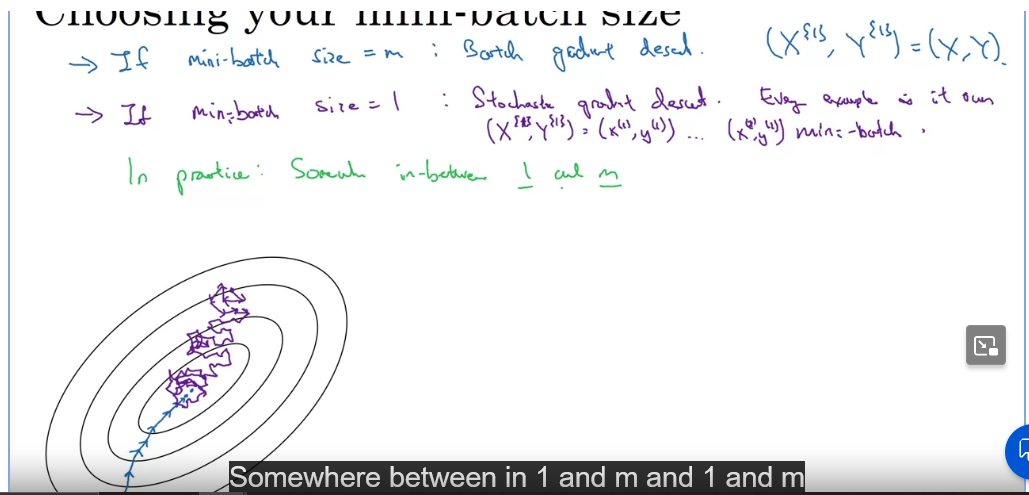 Choosing your mini-batch size
→ If mini-batch size = m : Batch gradient descent. (X^{1}, Y^{1}) = (X, Y).
→ If mini-batch size = 1 : Stochastic gradient descent. Every example is it own
(X^{1}, Y^{1}) = (x^(1), y^(1)) ... (x^(2), y^(2)) mini-batch.
In practice: Somewhere in-between 1 and m
Somewhere between in 1 and m and 1 and m